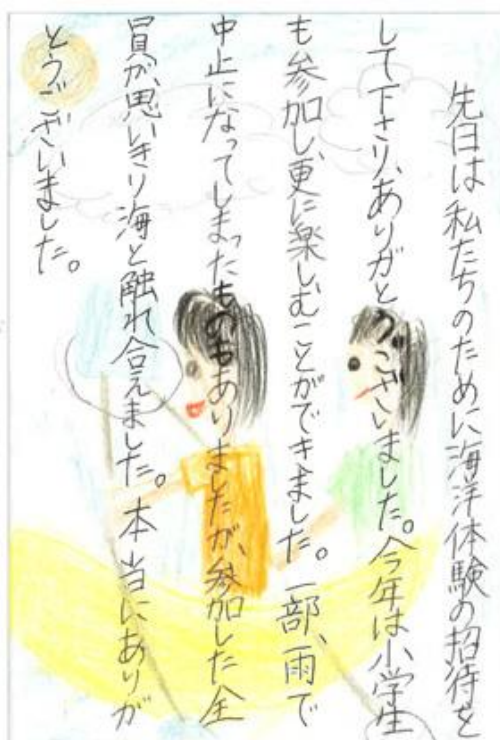 先日は私たちのために海洋体験の招待を
して下さり、ありがとうございました。今年は小学生
も参加し、更に楽しむことができました。一部、雨で
中止になってしまったものもありましたが、参加した全
員が、思いきり海と触れ合えました。本当にありが
とうございました。